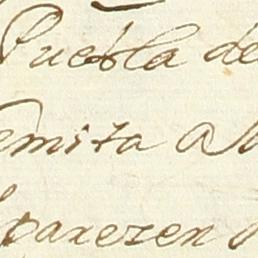 Puebla de
emita a
parezen